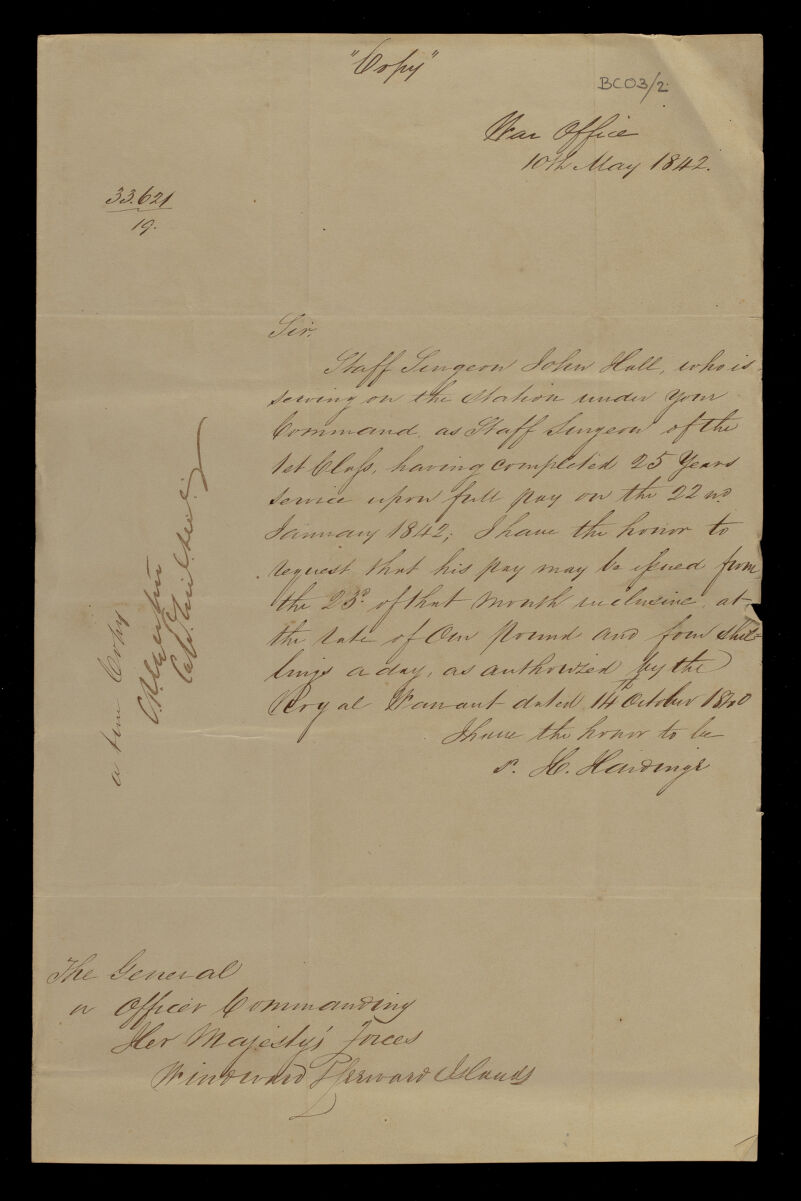 "Copy"
BC03/2.
War Office
10th May 1842.
33.621
19.
Sir,
Staff Surgeon John Hall, who is
serving on the Station under your
Command, as Staff Surgeon of the
1st Class, having completed 25 Years
service upon full pay on the 22nd
January 1842; I have the honor to
request that his pay may be issued from
the 23d. of that Month inclusive, at
the rate of One Pound and four Shil-
lings a day, as authorized by the
Royal Warrant dated 14th October 1840
I have the honor to be
H. Hardinge
a true Copy
The General
or Officer Commanding
Her Majesty's Forces
Windward & Leeward Islands